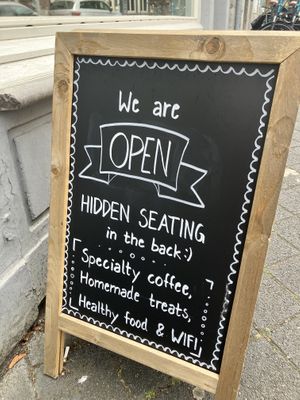 We are
OPEN
HIDDEN SEATING
in the back:)
Specialty coffee,
Homemade treats,
Healthy food & WIFI